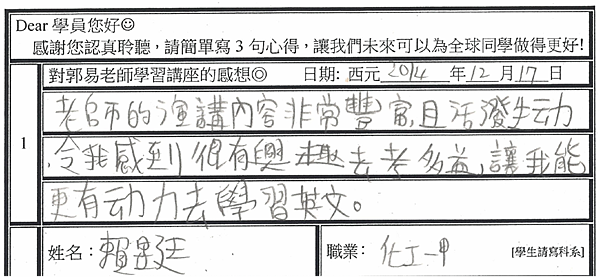 Dear 學員您好☺
感謝您認真聆聽，請簡單寫 3 句心得，讓我們未來可以為全球同學做得更好!
對郭易老師學習講座的感想◎ 日期: 西元 2014 年 12 月 17 日
1
老師的演講內容非常豐富，且活潑生动
令我感到很有興趣去考多益，讓我能
更有动力去學習英文。
姓名：賴昱廷 職業：化工一甲 [學生請寫科系]